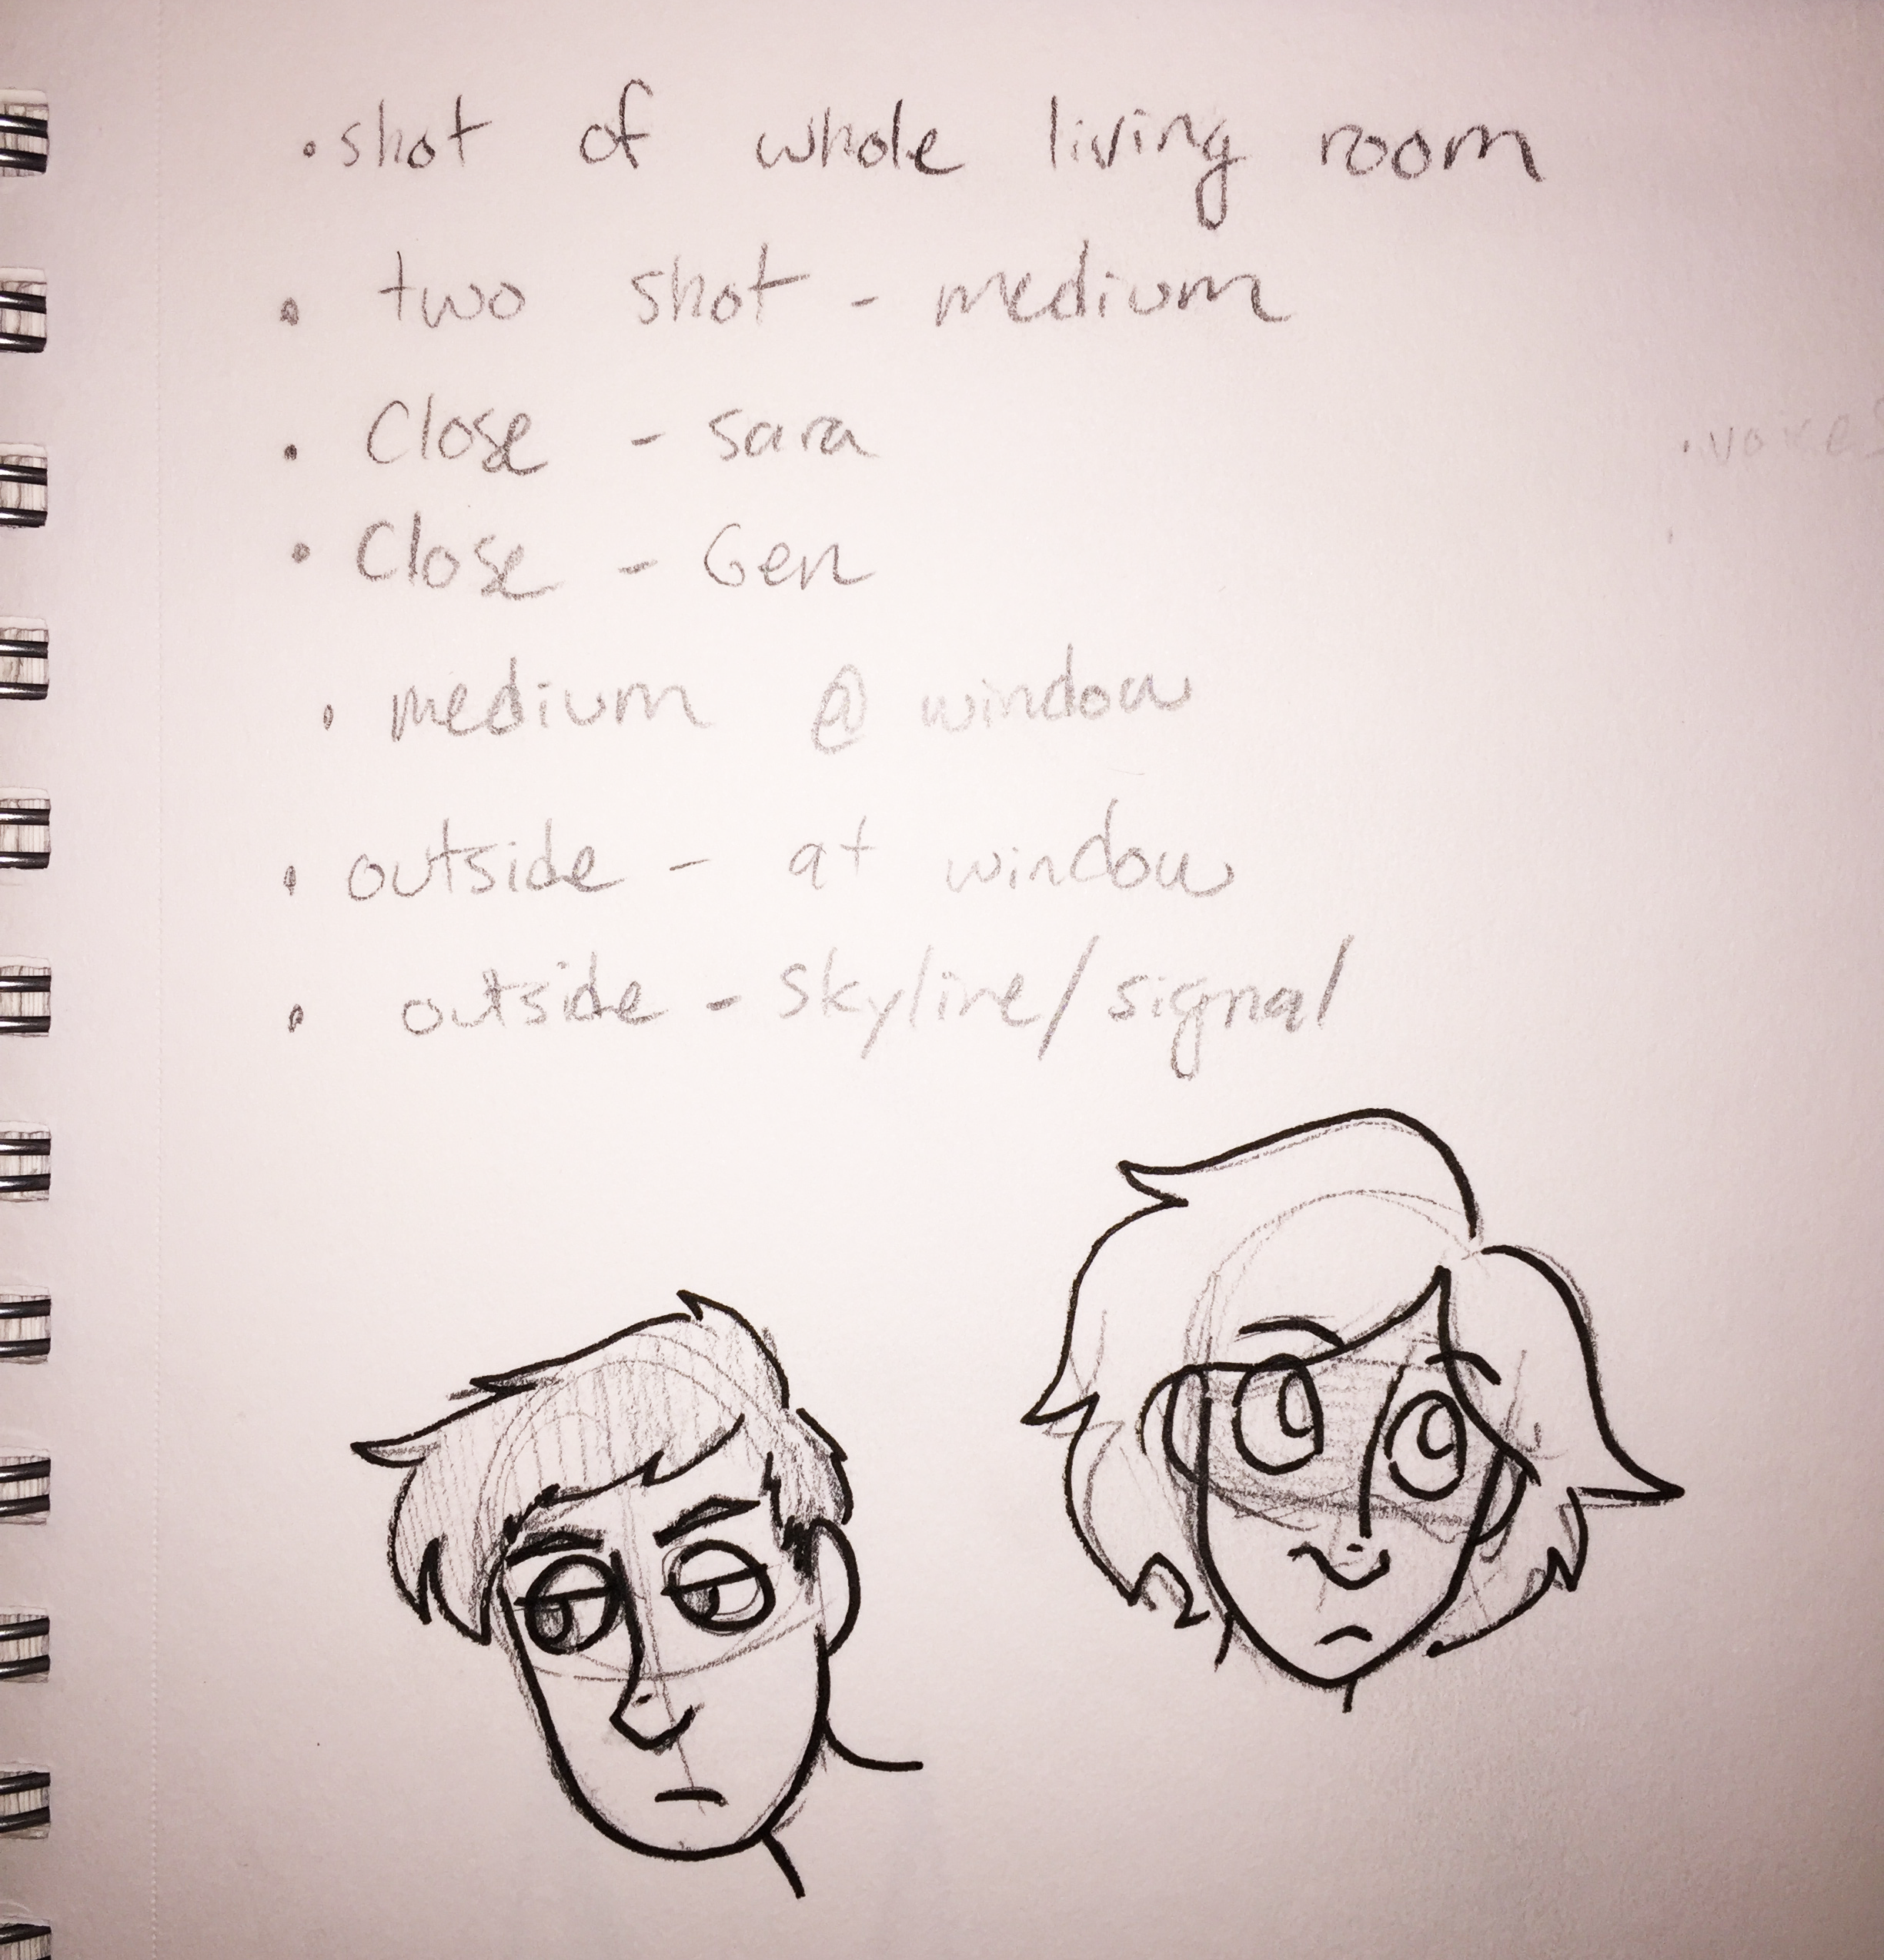 • shot of whole living room
• two shot - medium
• Close - sara
• Close - Gen
• medium @ window
• outside - at window
• outside - skyline/signal